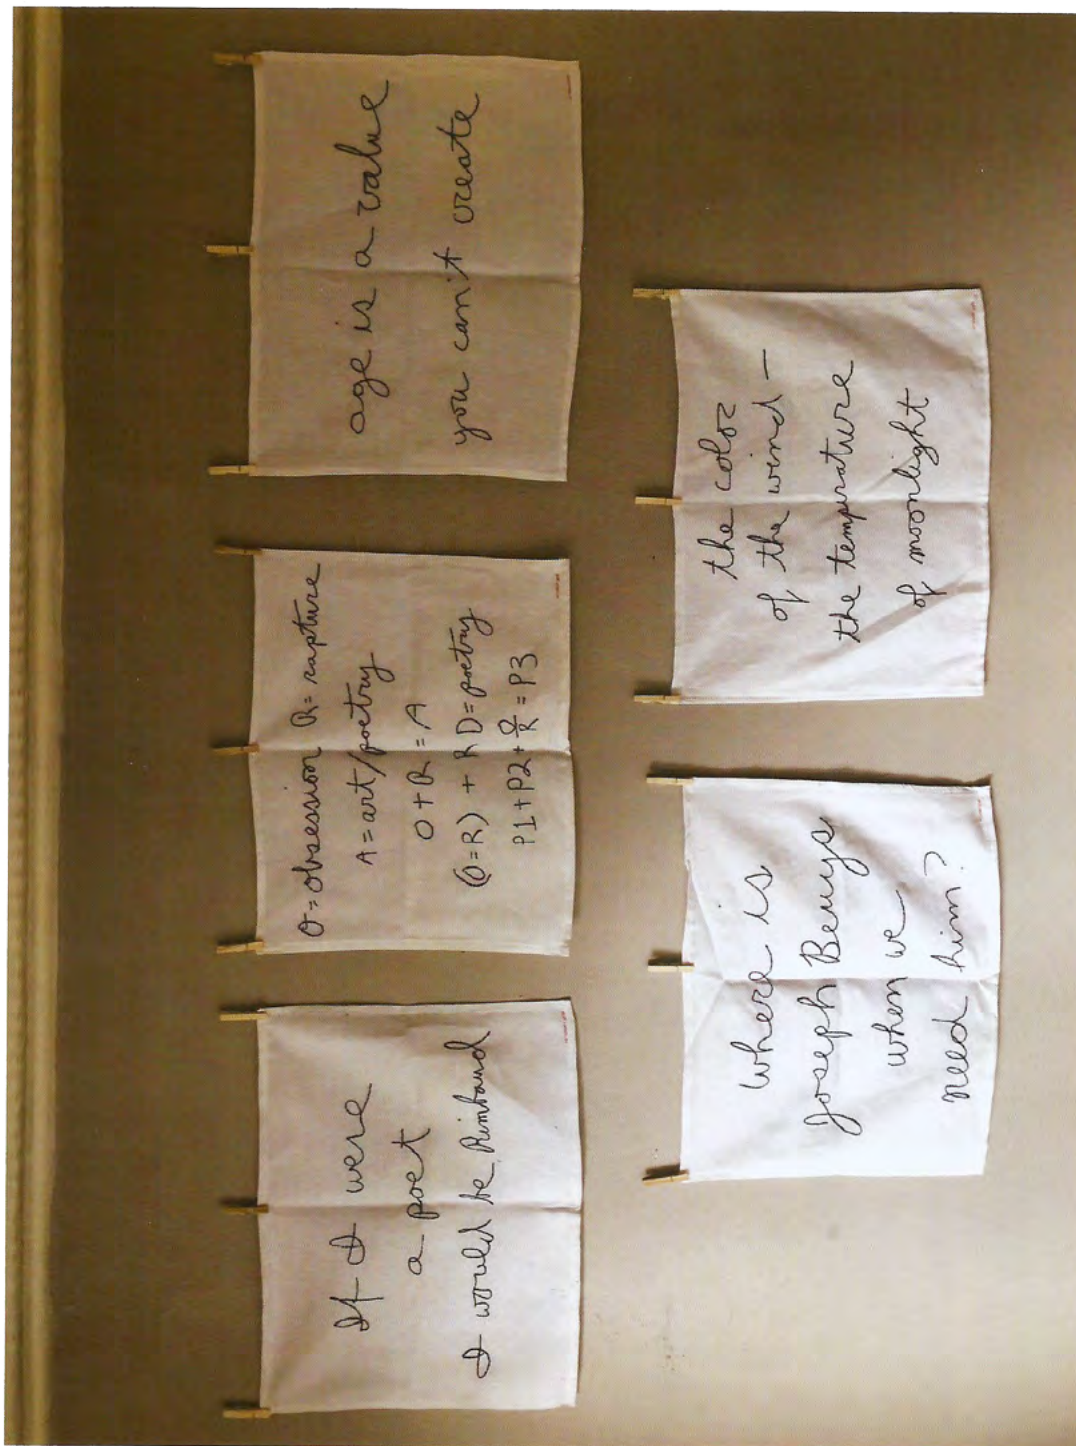 If I were
a poet
I would be Rimbaud
O = obsession R = rapture
A = art/poetry
O + R = A
(O = R) + RD = poetry
P1 + P2 + O/R = P3
age is a value
you can't create
where is
Joseph Beuys
when we
need him?
the color
of the wind —
the temperature
of moonlight